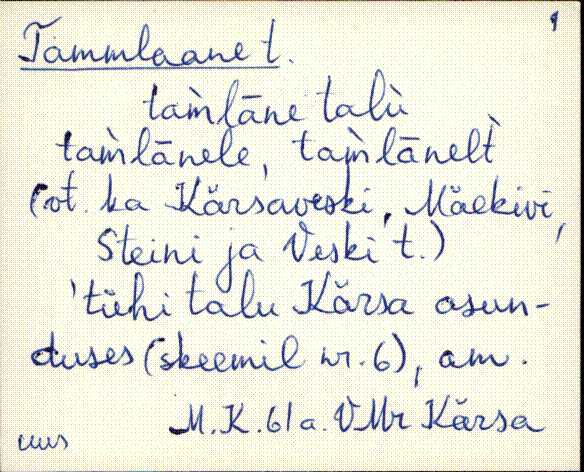 9
Tammlaane t.
tam̀lāne talù
tam̀lānele, tam̀lānelt̀
(vt. ka Kärsaveski, Mäekivi,
Steini ja Veski t.)
'tühi talu Kärsa asun-
duses (skeemil nr. 6), am.
M.K. 61 a. VMr Kärsa
uus